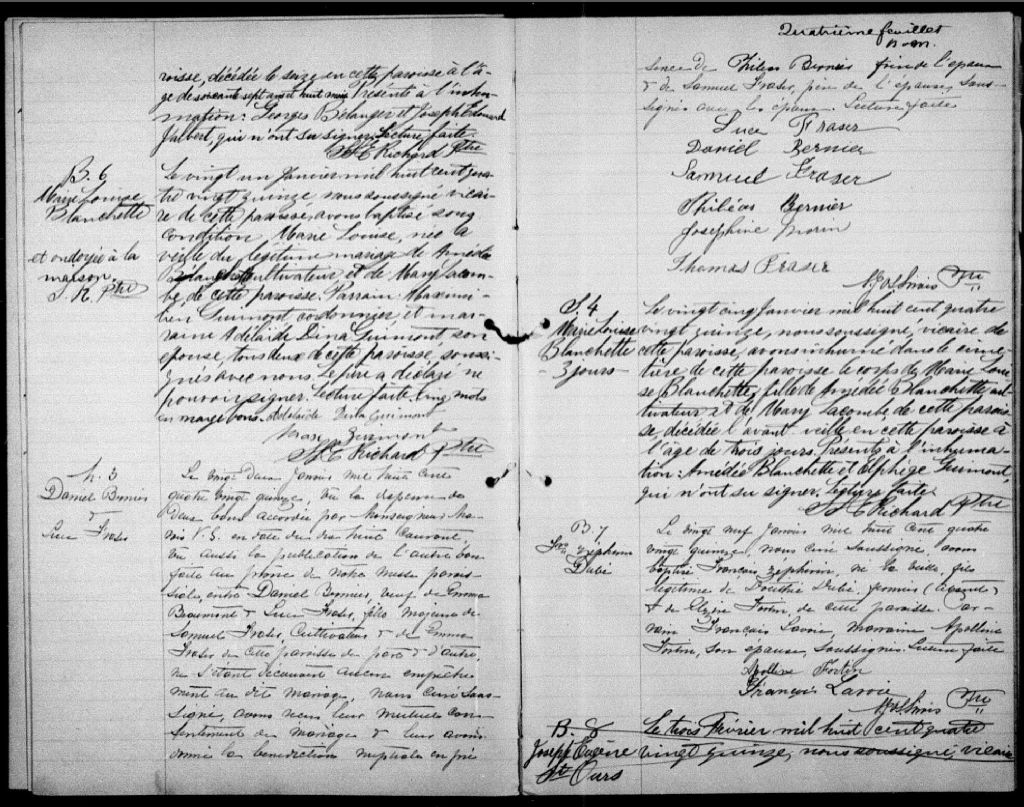 roisse, décédée le seize en cette paroisse à l'â-
ge de soixante sept ans et huit mois. Présents à l'inhu-
mation: Georges Bélanger et Joseph Edouard
Jalbert, qui n'ont su signer. Lecture faite.
Richard Ptre
B. 6
Marie Louise
Blanchette
et ondoyée à la
maison.
Ptre
Le vingt un Janvier mil huit cent qua-
tre vingt quinze, nous soussigné vicai-
re de cette paroisse, avons baptisé sous
condition Marie Louise, née la
veille du légitime mariage de Amédée
Blanchette cultivateur et de Mary Lacom-
be de cette paroisse. Parrain Maximi-
lien Guimont cordonnier et mar-
raine Adélaïde Dina Guimont, son
épouse, tous deux de cette paroisse, soussi-
gnés avec nous. Le père a déclaré ne
pouvoir signer. Lecture faite. Cinq mots
en marge bons. Adelaide Dina Guimont
Max Guimont
Richard Ptre
M. 3
Daniel Bernier
&
Luce Fraser
Le vingt deux Janvier mil huit cent
quatre vingt quinze, vu la dispense de
deux bans accordée par Monseigneur Ma-
rois V. G. en date du dix huit courant,
vu aussi la publication de l'autre ban
faite au prône de notre messe parois-
siale, entre Daniel Bernier, veuf de Emma
Beaumont & Luce Fraser, fille majeure de
Samuel Fraser, Cultivateur & de Emma
Fraser de cette paroisse de part & d'autre,
ne s'étant découvert aucun empêche-
ment au dit mariage, nous curé sous-
signé, avons reçu leur mutuel con-
sentement de mariage & leur avons
donné la bénédiction nuptiale en pré
Quatrième feuillet
sence de Philéas Bernier frère de l'époux
& de Samuel Fraser, père de l'épouse, sous-
signés avec les époux. Lecture faite
Luce Fraser
Daniel Bernier
Samuel Fraser
Philéas Bernier
Josephine Morin
Thomas Fraser
Ptre
S. 4
Marie Louise
Blanchette
3 jours
Le vingt cinq janvier mil huit cent quatre
vingt quinze, nous soussigné, vicaire de
cette paroisse, avons inhumé dans le cime-
tière de cette paroisse le corps de Marie Loui-
se Blanchette, fille de Amédée Blanchette, cul-
tivateur et de Mary Lacombe de cette parois-
se, décédée l'avant-veille en cette paroisse à
l'âge de trois jours. Présents à l'inhuma-
tion: Amédée Blanchette et Elphège Guimont,
qui n'ont su signer. Lecture faite.
Richard Ptre
B 7
Frs Zépherin
Dubé
Le vingt neuf Janvier mil huit cent quatre
vingt quinze, nous curé soussigné, avons
baptisé François Zépherin, né la veille, fils
légitime de Dosithé Dubé, (absent)
& de Elzire Fortin, de cette paroisse. Par-
rain François Lavoie, marraine Apolline
Fortin, son épouse, soussignés. Lecture faite
Apolline Fortin
François Lavoie
Ptre
B. 8
Joseph Eugène
St Ours
Le trois Février mil huit cent quatre
vingt quinze, nous soussigné, vicaire